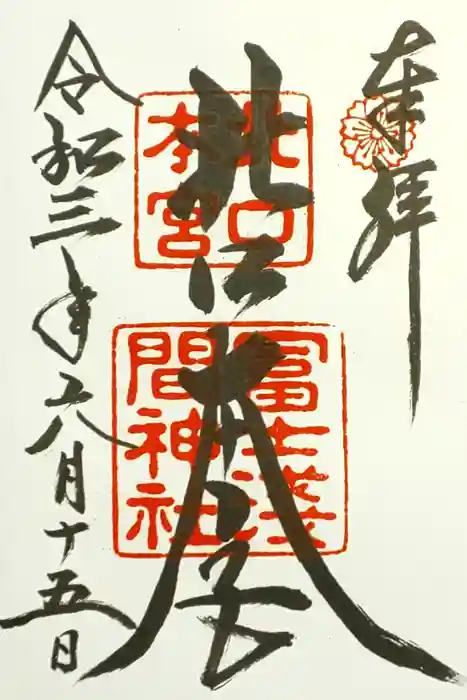 奉拝
北口本宮
北口
本宮
冨士浅
間神社
令和三年六月十五日